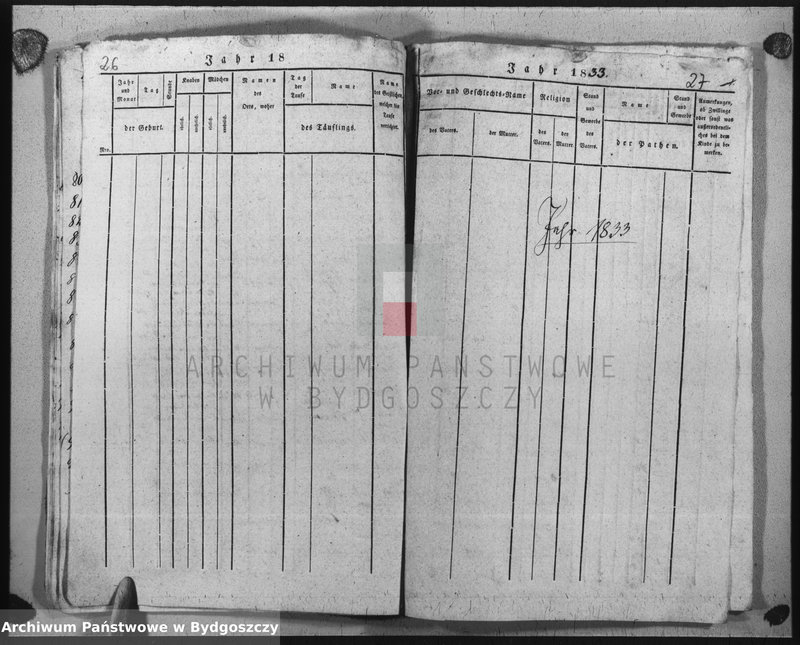 26
Jahr 18
Nro.
Jahr und Monat
Tag
Stunde
der Geburt.
Knaben
ehelich.
unehelich.
Mädchen
ehelich.
unehelich.
Namen des Orts, woher
Tag der Taufe
Name
des Täuflings.
Name des Geistlichen, welcher die Taufe verrichtet.
Jahr 1833.
27
Vor- und Geschlechts-Name
des Vaters.
der Mutter.
Religion
des Vaters.
der Mutter
Stand und Gewerbe des Vaters.
Name
Stand und Gewerbe
der Pathen.
Anmerkungen, ob Zwillinge oder sonst was außerordentliches bei dem Kinde zu bemerken.
80
81
82
8
8
8
8
8
Jahr 1833
ARCHIWUM PAŃSTWOWE
W BYDGOSZCZY
Archiwum Państwowe w Bydgoszczy